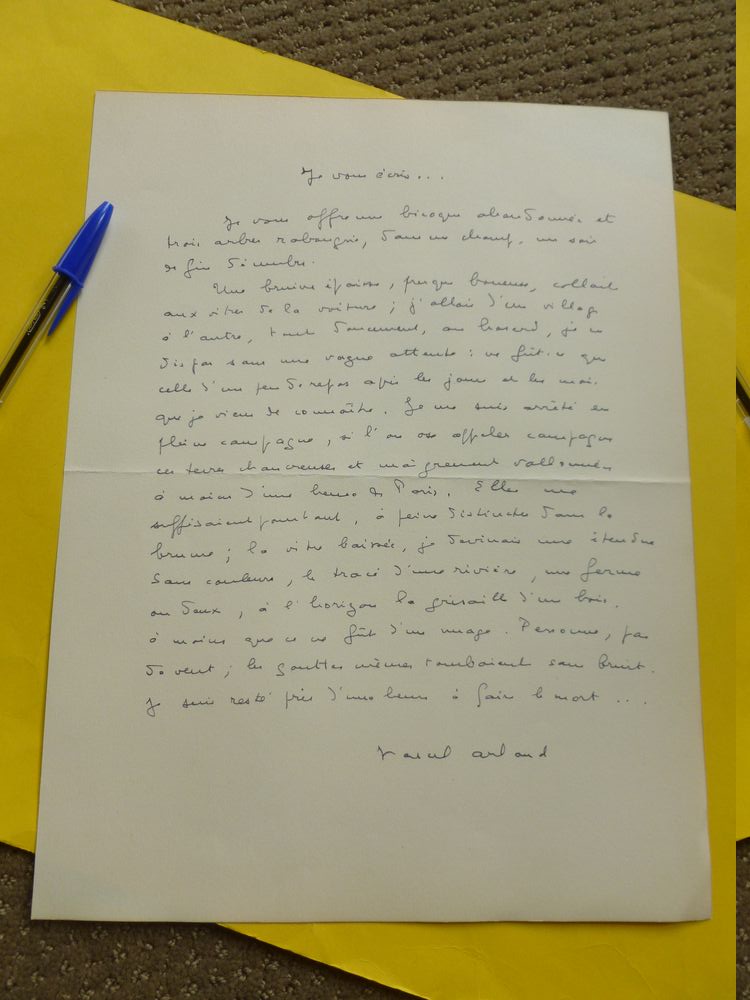 Je vous écris...
Je vous offre une bicoque abandonnée et
trois arbres rabougris, dans un champ, un soir
de fin décembre.
Une bruine épaisse, presque boueuse, collait
aux vitres de la voiture ; j'allais d'un village
à l'autre, tout doucement, au hasard, je ne
dis pas sans une vague attente : ne fût-ce que
celle d'un peu de repos après les jours et les mois
que je viens de connaître. Je me suis arrêté en
pleine campagne, si l'on ose appeler campagne
ces terres chancreuses et maigrement vallonnées
à moins d'une heure de Paris. Elles me
suffisaient pourtant, à peine distinctes dans la
brume ; la vitre baissée, je devinais une étendue
sans couleurs, le tracé d'une rivière, une ferme
ou deux, à l'horizon la grisaille d'un bois,
à moins que ce ne fût d'un nuage. Personne, pas
de vent ; les gouttes mêmes tombaient sans bruit.
Je suis resté près d'une heure à faire le mort...
Marcel Arland